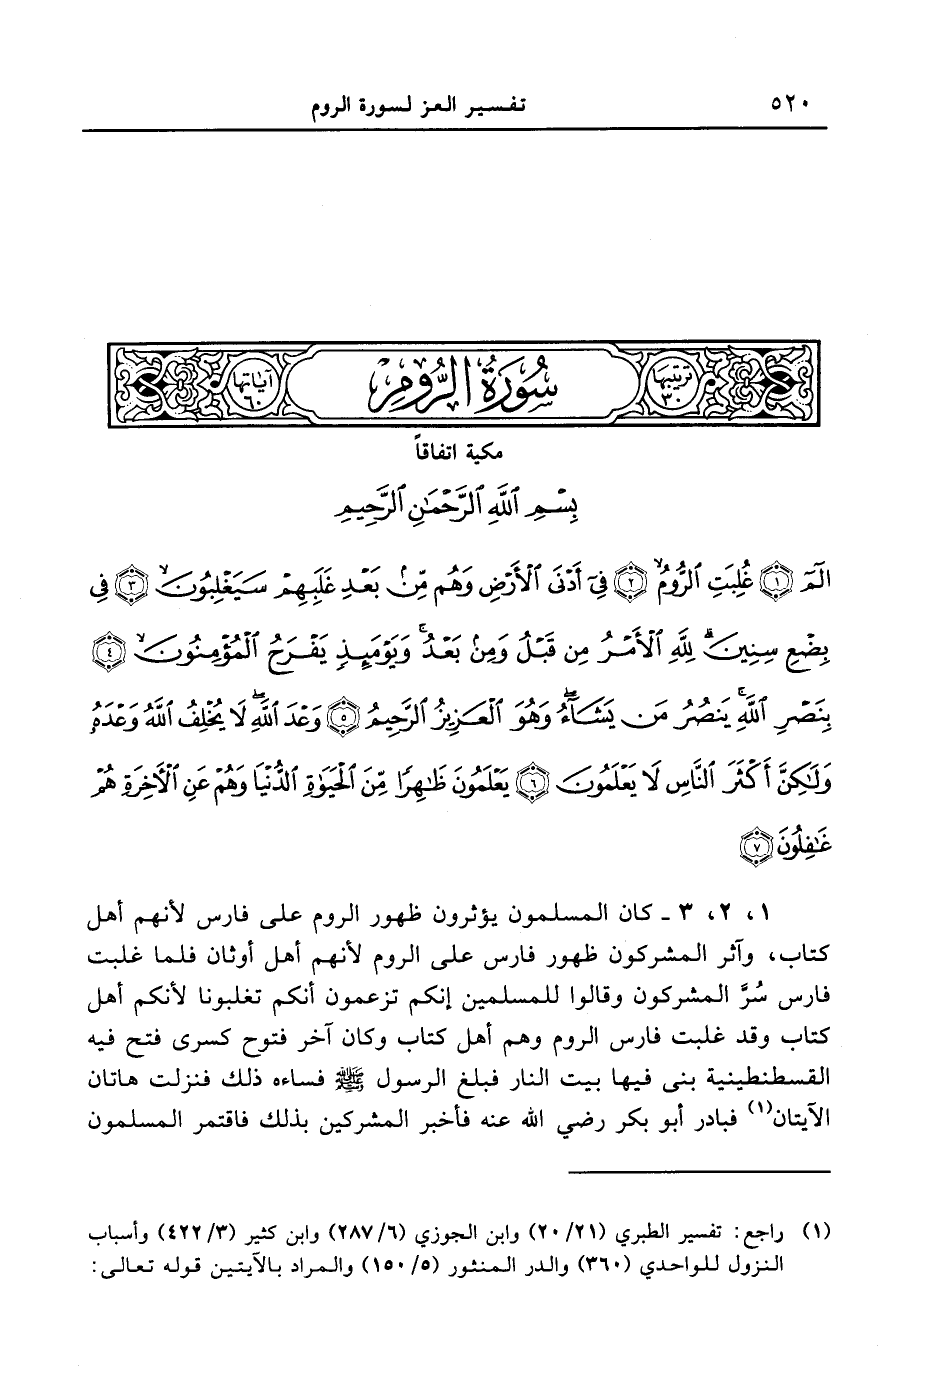 ٥٢٠
تفسير العز لسورة الروم
ترتيبها ٣٠
سُورَةُ الرُّومِ
آياتها ٦٠
مكية اتفاقاً
بِسْمِ ٱللَّهِ ٱلرَّحْمَٰنِ ٱلرَّحِيمِ
الٓمٓ ١ غُلِبَتِ ٱلرُّومُ ٢ فِىٓ أَدْنَى ٱلْأَرْضِ وَهُم مِّنۢ بَعْدِ غَلَبِهِمْ سَيَغْلِبُونَ ٣ فِى
بِضْعِ سِنِينَ ۗ لِلَّهِ ٱلْأَمْرُ مِن قَبْلُ وَمِنۢ بَعْدُ ۚ وَيَوْمَئِذٍ يَفْرَحُ ٱلْمُؤْمِنُونَ ٤
بِنَصْرِ ٱللَّهِ ۚ يَنصُرُ مَن يَشَآءُ ۖ وَهُوَ ٱلْعَزِيزُ ٱلرَّحِيمُ ٥ وَعْدَ ٱللَّهِ ۖ لَا يُخْلِفُ ٱللَّهُ وَعْدَهُۥ
وَلَٰكِنَّ أَكْثَرَ ٱلنَّاسِ لَا يَعْلَمُونَ ٦ يَعْلَمُونَ ظَٰهِرًا مِّنَ ٱلْحَيَوٰةِ ٱلدُّنْيَا وَهُمْ عَنِ ٱلْأَخِرَةِ هُمْ
غَٰفِلُونَ ٧
١، ٢، ٣ ـ كان المسلمون يؤثرون ظهور الروم على فارس لأنهم أهل
كتاب، وآثر المشركون ظهور فارس على الروم لأنهم أهل أوثان فلما غلبت
فارس سُرَّ المشركون وقالوا للمسلمين إنكم تزعمون أنكم تغلبونا لأنكم أهل
كتاب وقد غلبت فارس الروم وهم أهل كتاب وكان آخر فتوح كسرى فتح فيه
القسطنطينية بنى فيها بيت النار فبلغ الرسول ﷺ فساءه ذلك فنزلت هاتان
الآيتان(١) فبادر أبو بكر رضي الله عنه فأخبر المشركين بذلك فاقتمر المسلمون
(١) راجع: تفسير الطبري (٢٠/٢١) وابن الجوزي (٢٨٧/٦) وابن كثير (٤٢٢/٣) وأسباب
النزول للواحدي (٣٦٠) والدر المنثور (١٥٠/٥) والمراد بالآيتين قوله تعالى: